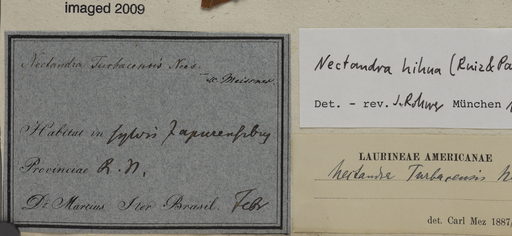 imaged 2009
Nectandra Turbacensis Nees.
sc Meissner.
Habitat in sylvis Japurensibus
Provinciae R. N.
Dr Martius Iter Brasil. Febr
Nectandra hihua (Ruiz & Pa
Det. - rev. J. Rohwer München
LAURINEAE AMERICANAE
Nectandra Turbacensis N
det. Carl Mez 1887/